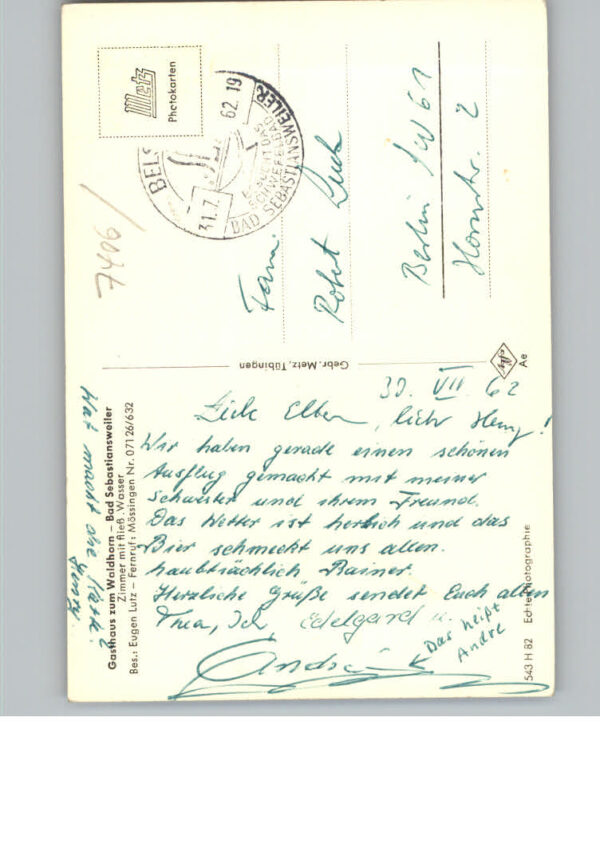 Metz
Photokarten
BELS
31.7.62.19
ES SUCHT DAS
SCHWEFELBAD
BAD SEBASTIANSWEILER
7406/
Fam.
Robert
Berlin SW 61
Hornstr. 2
Gebr. Metz, Tübingen
Ae
30. VII. 62
Liebe Eltern, lieber Heinz!
Wir haben gerade einen schönen
Ausflug gemacht mit meiner
Schwester und ihrem Freund.
Das Wetter ist herrlich und das
Bier schmeckt uns allen.
haubtsächlich Rainer.
Herzliche Grüße sendet Euch allen
Thea, Edelgard u.
André
Das heißt
Andre
Wat macht die
Gasthaus zum Waldhorn – Bad Sebastiansweiler
Zimmer mit fließ. Wasser
Bes.: Eugen Lutz – Fernruf: Mössingen Nr. 07126/632
543 H 82 Echte Photographie